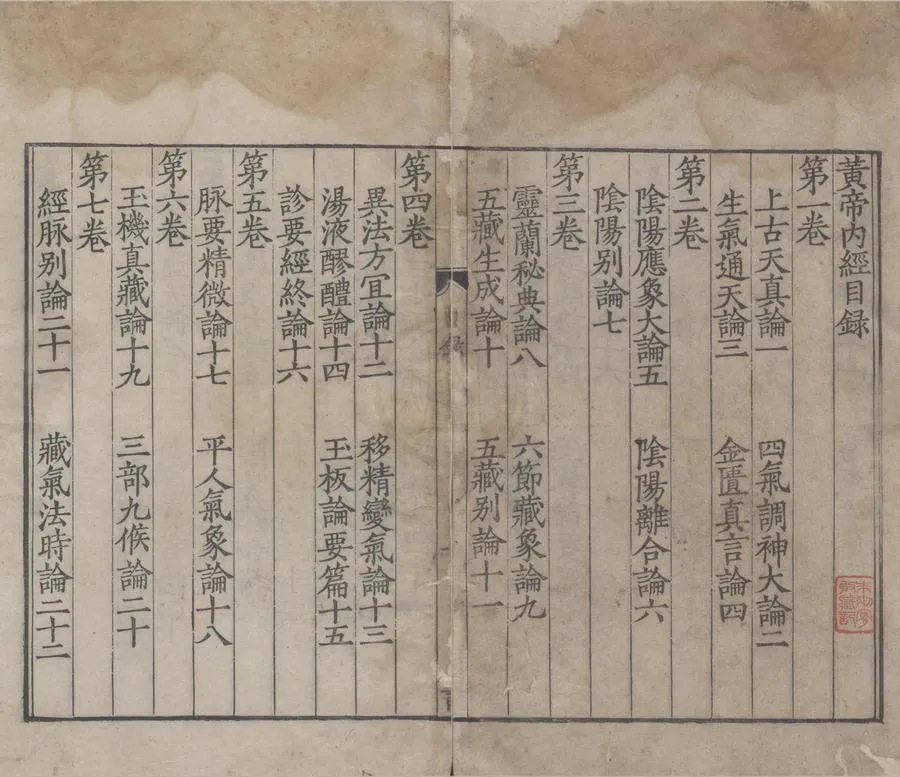 黄帝内經目録
第一卷
上古天真論一 四氣調神大論二
生氣通天論三 金匱真言論四
第二卷
陰陽應象大論五 陰陽離合論六
陰陽别論七
第三卷
靈蘭秘典論八 六節藏象論九
五藏生成論十 五藏别論十一
目録
第四卷
異法方宜論十二 移精變氣論十三
湯液醪醴論十四 玉板論要篇十五
診要經終論十六
第五卷
脉要精微論十七 平人氣象論十八
第六卷
玉機真藏論十九 三部九候論二十
第七卷
經脉别論二十一 藏氣法時論二十二